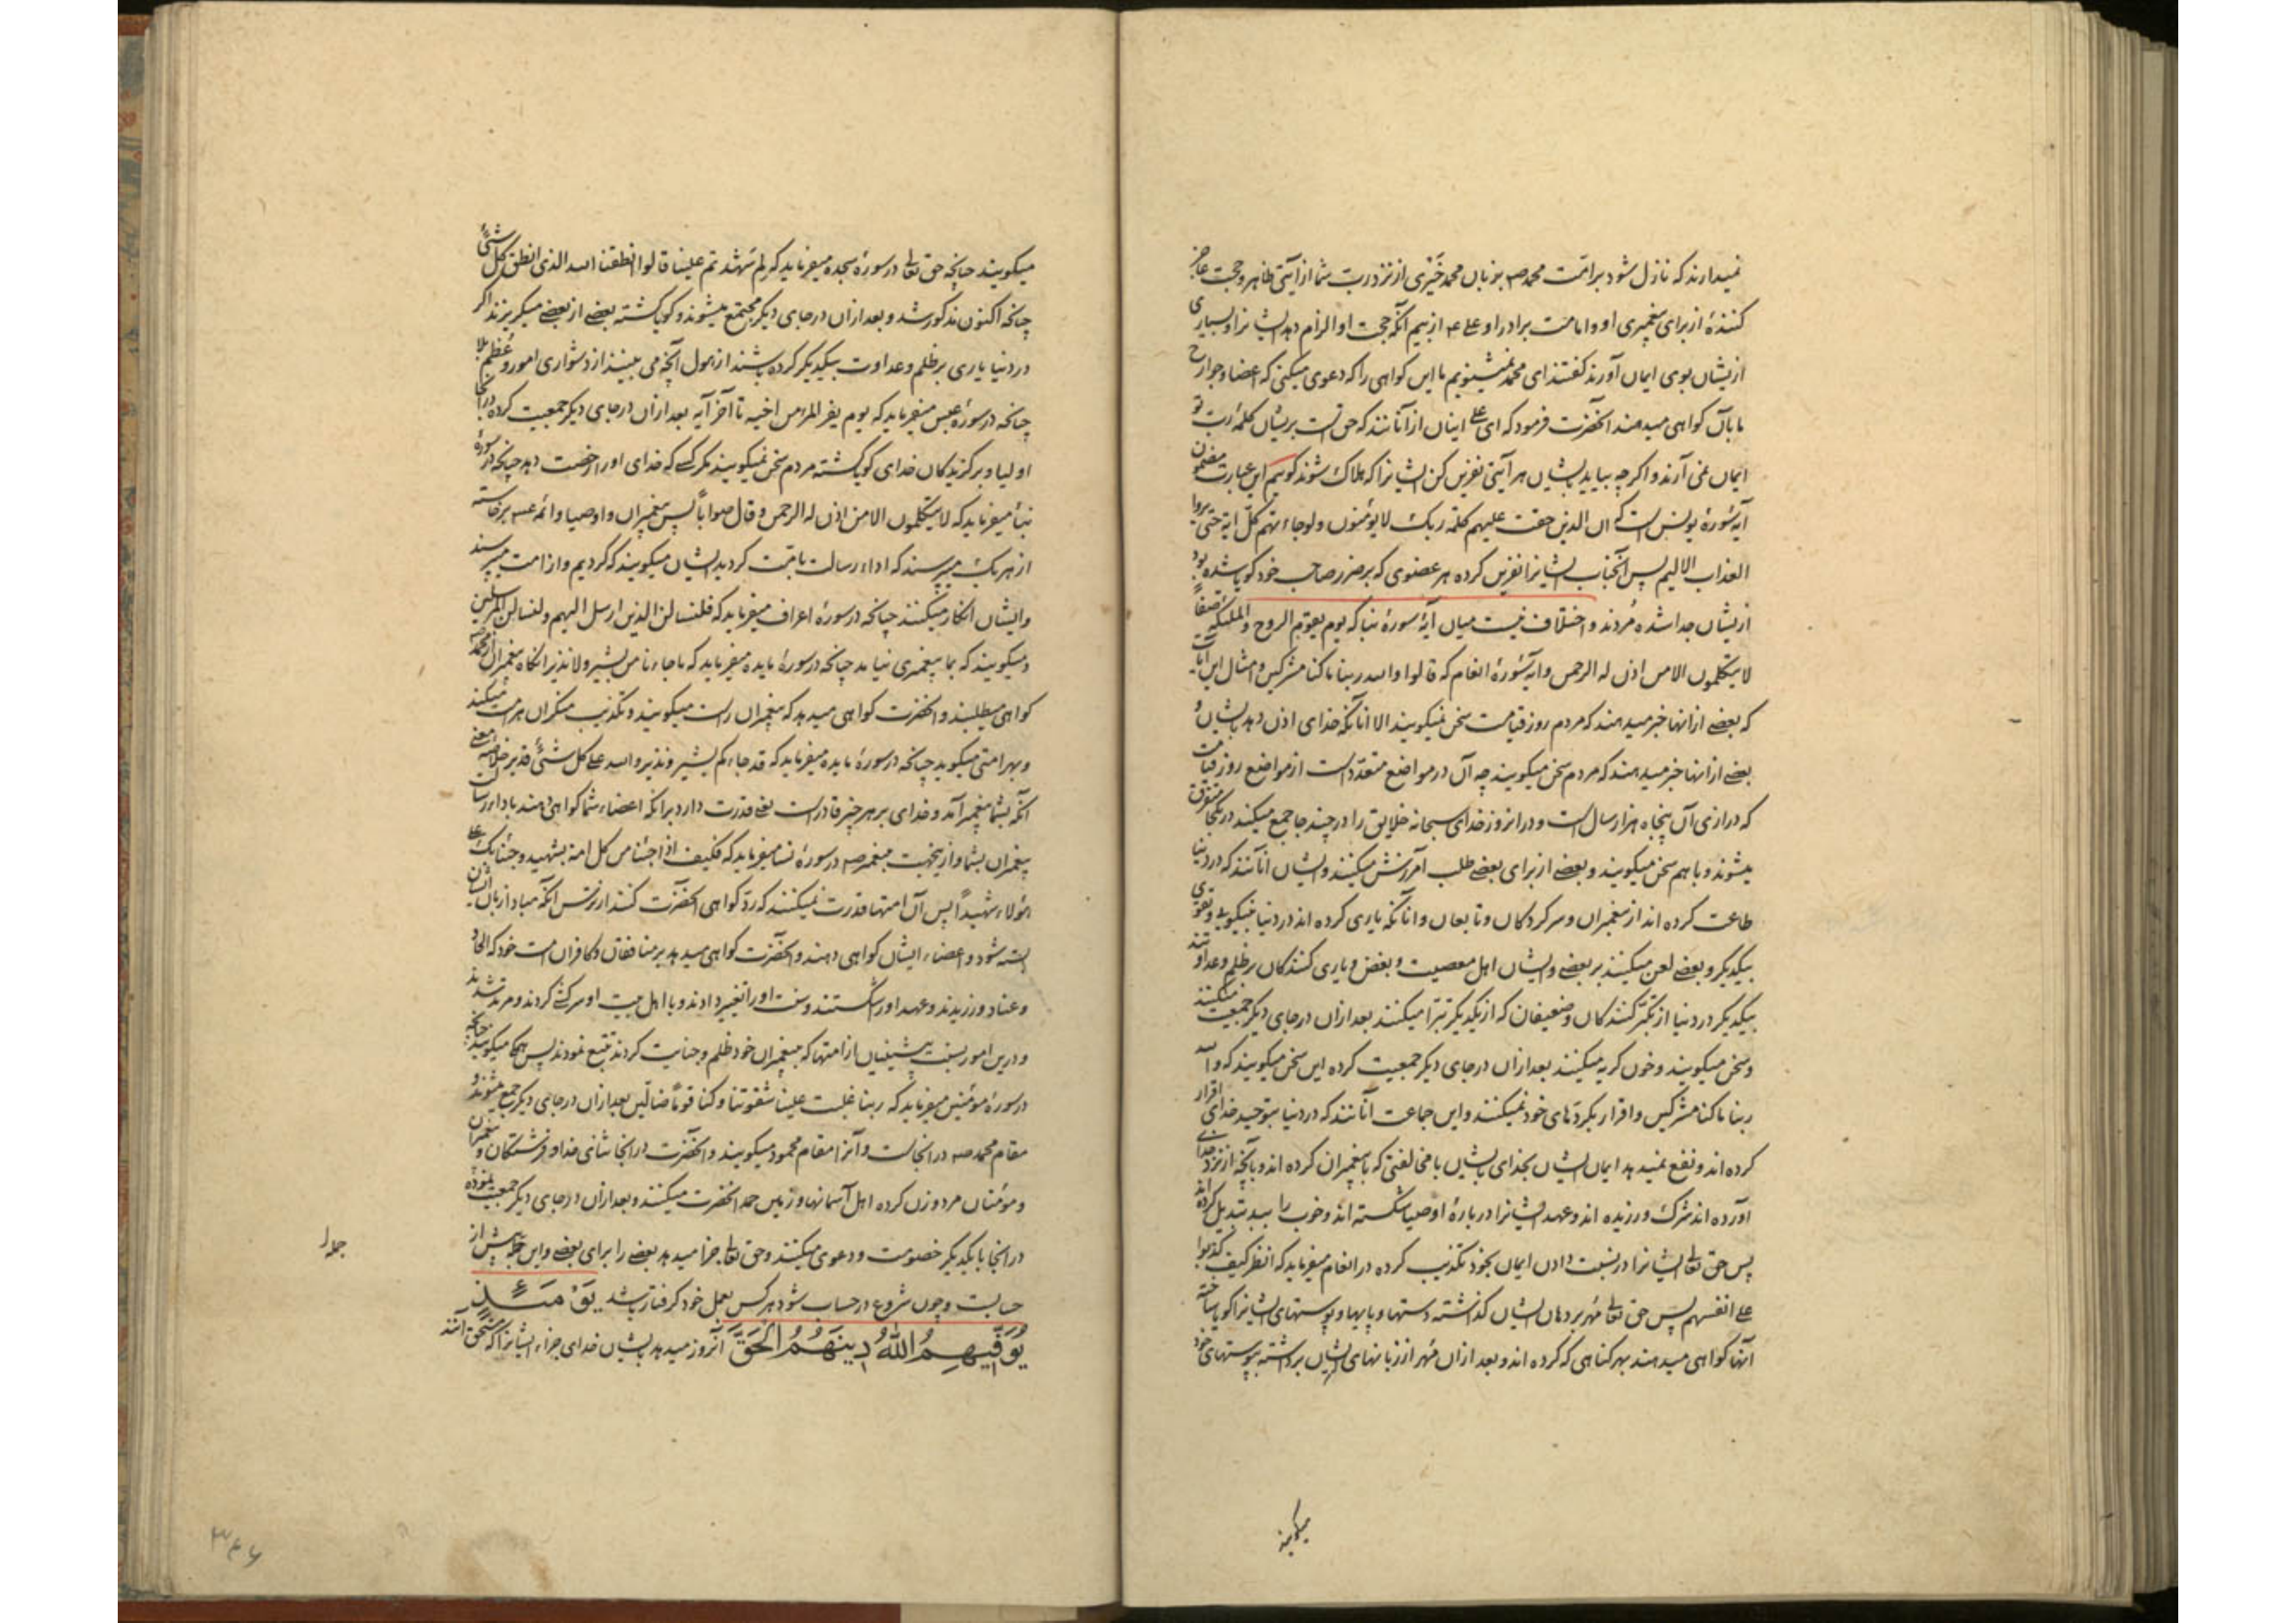 نمیدارند که نازل شود بر امّت محمد صه بزبان محمد خَیْری از نزد ربّ شما از آیتی ظاهر و حجت عاجز
کنندهٔ از برای پیغمبری او و امامت برادر او علی ع از بیم آنکه حجت او الزام دهد ایشانرا و بسیاری
ازیشان بوی ایمان آورند گفتند ای محمد نمیشنویم ما این گواهی را که دعوی میکنی که اعضا و جوارح
ما بآن گواهی میدهند آنحضرت فرمود که ای علی اینان از آنانند که حق است بریشان کلمهٔ ربّ تو
ایمان نمی آرند و اگرچه بیاید بایشان هر آیتی نفرین کن ایشانرا که هلاک شوند گویم این عبارت مضمون
آیهٔ سورهٔ یونس است که ان الذین حقت علیهم کلمة ربک لا یؤمنون ولو جاءتهم کلّ ایة حتی یروا
العذاب الالیم پس آنجناب ایشانرا نفرین کرده هر عضوی که بر ضرر صاحب خود گویا شده بود
ازیشان جدا شده مُردند و اختلاف نیست میان آیهٔ سورهٔ نبا که یوم یقوم الروح والملئکة صفاً
لا یتکلمون الا من اذن له الرحمن و آیهٔ سورهٔ انعام که قالوا والله ربنا ما کنا مشرکین و امثال این آیات
که بعضی ازانها خبر میدهند که مردم روز قیامت سخن نمیگویند الا انانکه خدای اذن دهد بایشان و
بعضی ازانها خبر میدهند که مردم سخن میگویند چه آن در مواضع متعدّد است از مواضع روز قیامت
که درازی آن پنجاه هزار سال است و در انروز خدای سبحانه خلایق را در چند جا جمع میکند در یکجا متفرق
میشوند و با هم سخن میگویند و بعضی از برای بعضی طلب آمرزش میکنند و ایشان انانند که در دنیا
طاعت کرده اند از پیغمبران و سرکردکان و تابعان و انانکه یاری کرده اند در دنیا بنیکویی و تقوی
بیکدیگر و بعضی لعن میکنند بر بعضی و ایشان اهل معصیت و بغض و یاری کنندگان بر ظلم و عداوتند
بیکدیگر در دنیا از تکبّر کنندگان و ضعیفان که از یکدیگر تبرّا میکنند بعد ازان در جای دیگر جمعیت میکنند
و سخن میگویند و خون گریه میکنند بعد ازان در جای دیگر جمعیت کرده این سخن میگویند که والله
ربنا ما کنا مشرکین و اقرار بکردّهای خود نمیکنند و این جماعت آنانند که در دنیا بتوحید خدای اقرار
کرده اند و نفع نمیدهد ایمان ایشان بخدای بایشان با مخالفتی که با پیغمبران کرده اند و بآنچه از نزد خدای
آورده اند شرک ورزیده اند و عهد ایشانرا دربارهٔ اوصیا شکسته اند و خوب را ببد تبدیل کرده اند
پس حق تعالی ایشانرا در نسبت دادن ایمان بخود تکذیب کرده در انعام میفرماید که انظر کیف کذبوا
علی انفسهم پس حق تعالی مُهر بر دهان ایشان گذاشته دستها و پایها و پوستهای ایشانرا گویا ساخته
آنها گواهی میدهند بهر گناهی که کرده اند و بعد ازان مُهر از زبانهای ایشان برداشته بپوستهای خود
میگویند
میگویند چنانچه حق تعالی در سورهٔ سجده میفرماید که لِمَ شهدتم علینا قالوا انطقنا الله الذی انطق کلّ شیٔ
چنانکه اکنون مذکور شد و بعد ازان در جای دیگر مجتمع میشوند و گویا گشته بعضی از بعضی میگریزند اگر
در دنیا یاری بر ظلم و عداوت بیکدیگر کرده باشند از هول آنچه می بینند از دشواری امور و عُظم بلا
چنانچه در سورهٔ عبس میفرماید که یوم یفر المرء من اخیه تا آخر آیه بعد ازان در جای دیگر جمعیت کرده درانجا
اولیا و برگزیدگان خدای گویا گشته مردم سخن نمیگویند مگر کسی که خدای او را رخصت دهد چنانچه در سورهٔ
نبا میفرماید که لا یتکلمون الا من اذن له الرحمن و قال صواباً پس پیغمبران و اوصیا و ائمه ع برخاسته
از هر یک میپرسند که اداء رسالت بامّت کردید ایشان میگویند که کردیم و از امت میپرسند
و ایشان انکار میکنند چنانچه در سورهٔ اعراف میفرماید که فلنسالن الذین ارسل الیهم و لنسالن المرسلین
و میگویند که بما پیغمبری نیامد چنانچه در سورهٔ مایده میفرماید که ما جاءنا من بشیر ولا نذیر انگاه پیغمبران از محمد صه
گواهی میطلبند و آنحضرت گواهی میدهد که پیغمبران راست میگویند و تکذیب منکران هر امت میکند
و بهر امتی میگوید چنانکه در سورهٔ مایده میفرماید که قد جاءکم بشیر و نذیر و الله علی کل شئ قدیر خلاصه معنی
آنکه بشما پیغمبر آمد و خدای بر هر چیز قادر است یعنی قدرت دارد برانکه اعضاء شما گواهی دهند باداء رسالت
پیغمبران بشما و ازینجهت پیغمبر صه در سورهٔ نسا میفرماید که فکیف اذا جئنا من کل امة بشهید و جئنا بک علی
هؤلاء شهیداً پس آن امتها قدرت نمیکنند که ردّ گواهی آنحضرت کنند از ترس آنکه مبادا زبان ایشان
بسته شود و اعضاء ایشان گواهی دهند و آنحضرت گواهی میدهد بر منافقان و کافران امت خود که الحاد
و عناد ورزیدند و عهد او را شکستند و سنت او را تغییر دادند و با اهل بیت او سرکشی کردند و مرتد شدند
و درین امور بسنت پیشینیان از امتها که بپیغمبران خود ظلم و خیانت کردند تتبع نمودند پس همگی میگویند چنانکه
در سورهٔ مؤمنین میفرماید که ربنا غلبت علینا شقوتنا و کنا قوماً ضالین بعد ازان در جای دیگر جمع میشوند و
مقام محمد صه در انجاست و آنرا مقام محمود میگویند و آنحضرت در انجا ثنای خدا و فرشتگان و پیغمبران
و مؤمنان مرد و زن کرده اهل آسمانها و زمین حمد آنحضرت میکنند و بعد ازان در جای دیگر جمعیت نموده
درانجا با یکدیگر خصومت و دعوی میکنند و حق تعالی جزا میدهد بعضی را برای بعضی و این همه پیش از
حسابست و چون شروع در حساب شود هر کس بعمل خود گرفتار باشد یَوْمَئِذٍ
یُوَفِّیهِمُ اللّٰهُ دِینَهُمُ الْحَقَّ آنروز میدهد بایشان خدای جزاء ایشانرا که مستحق آنند
۳۴۶